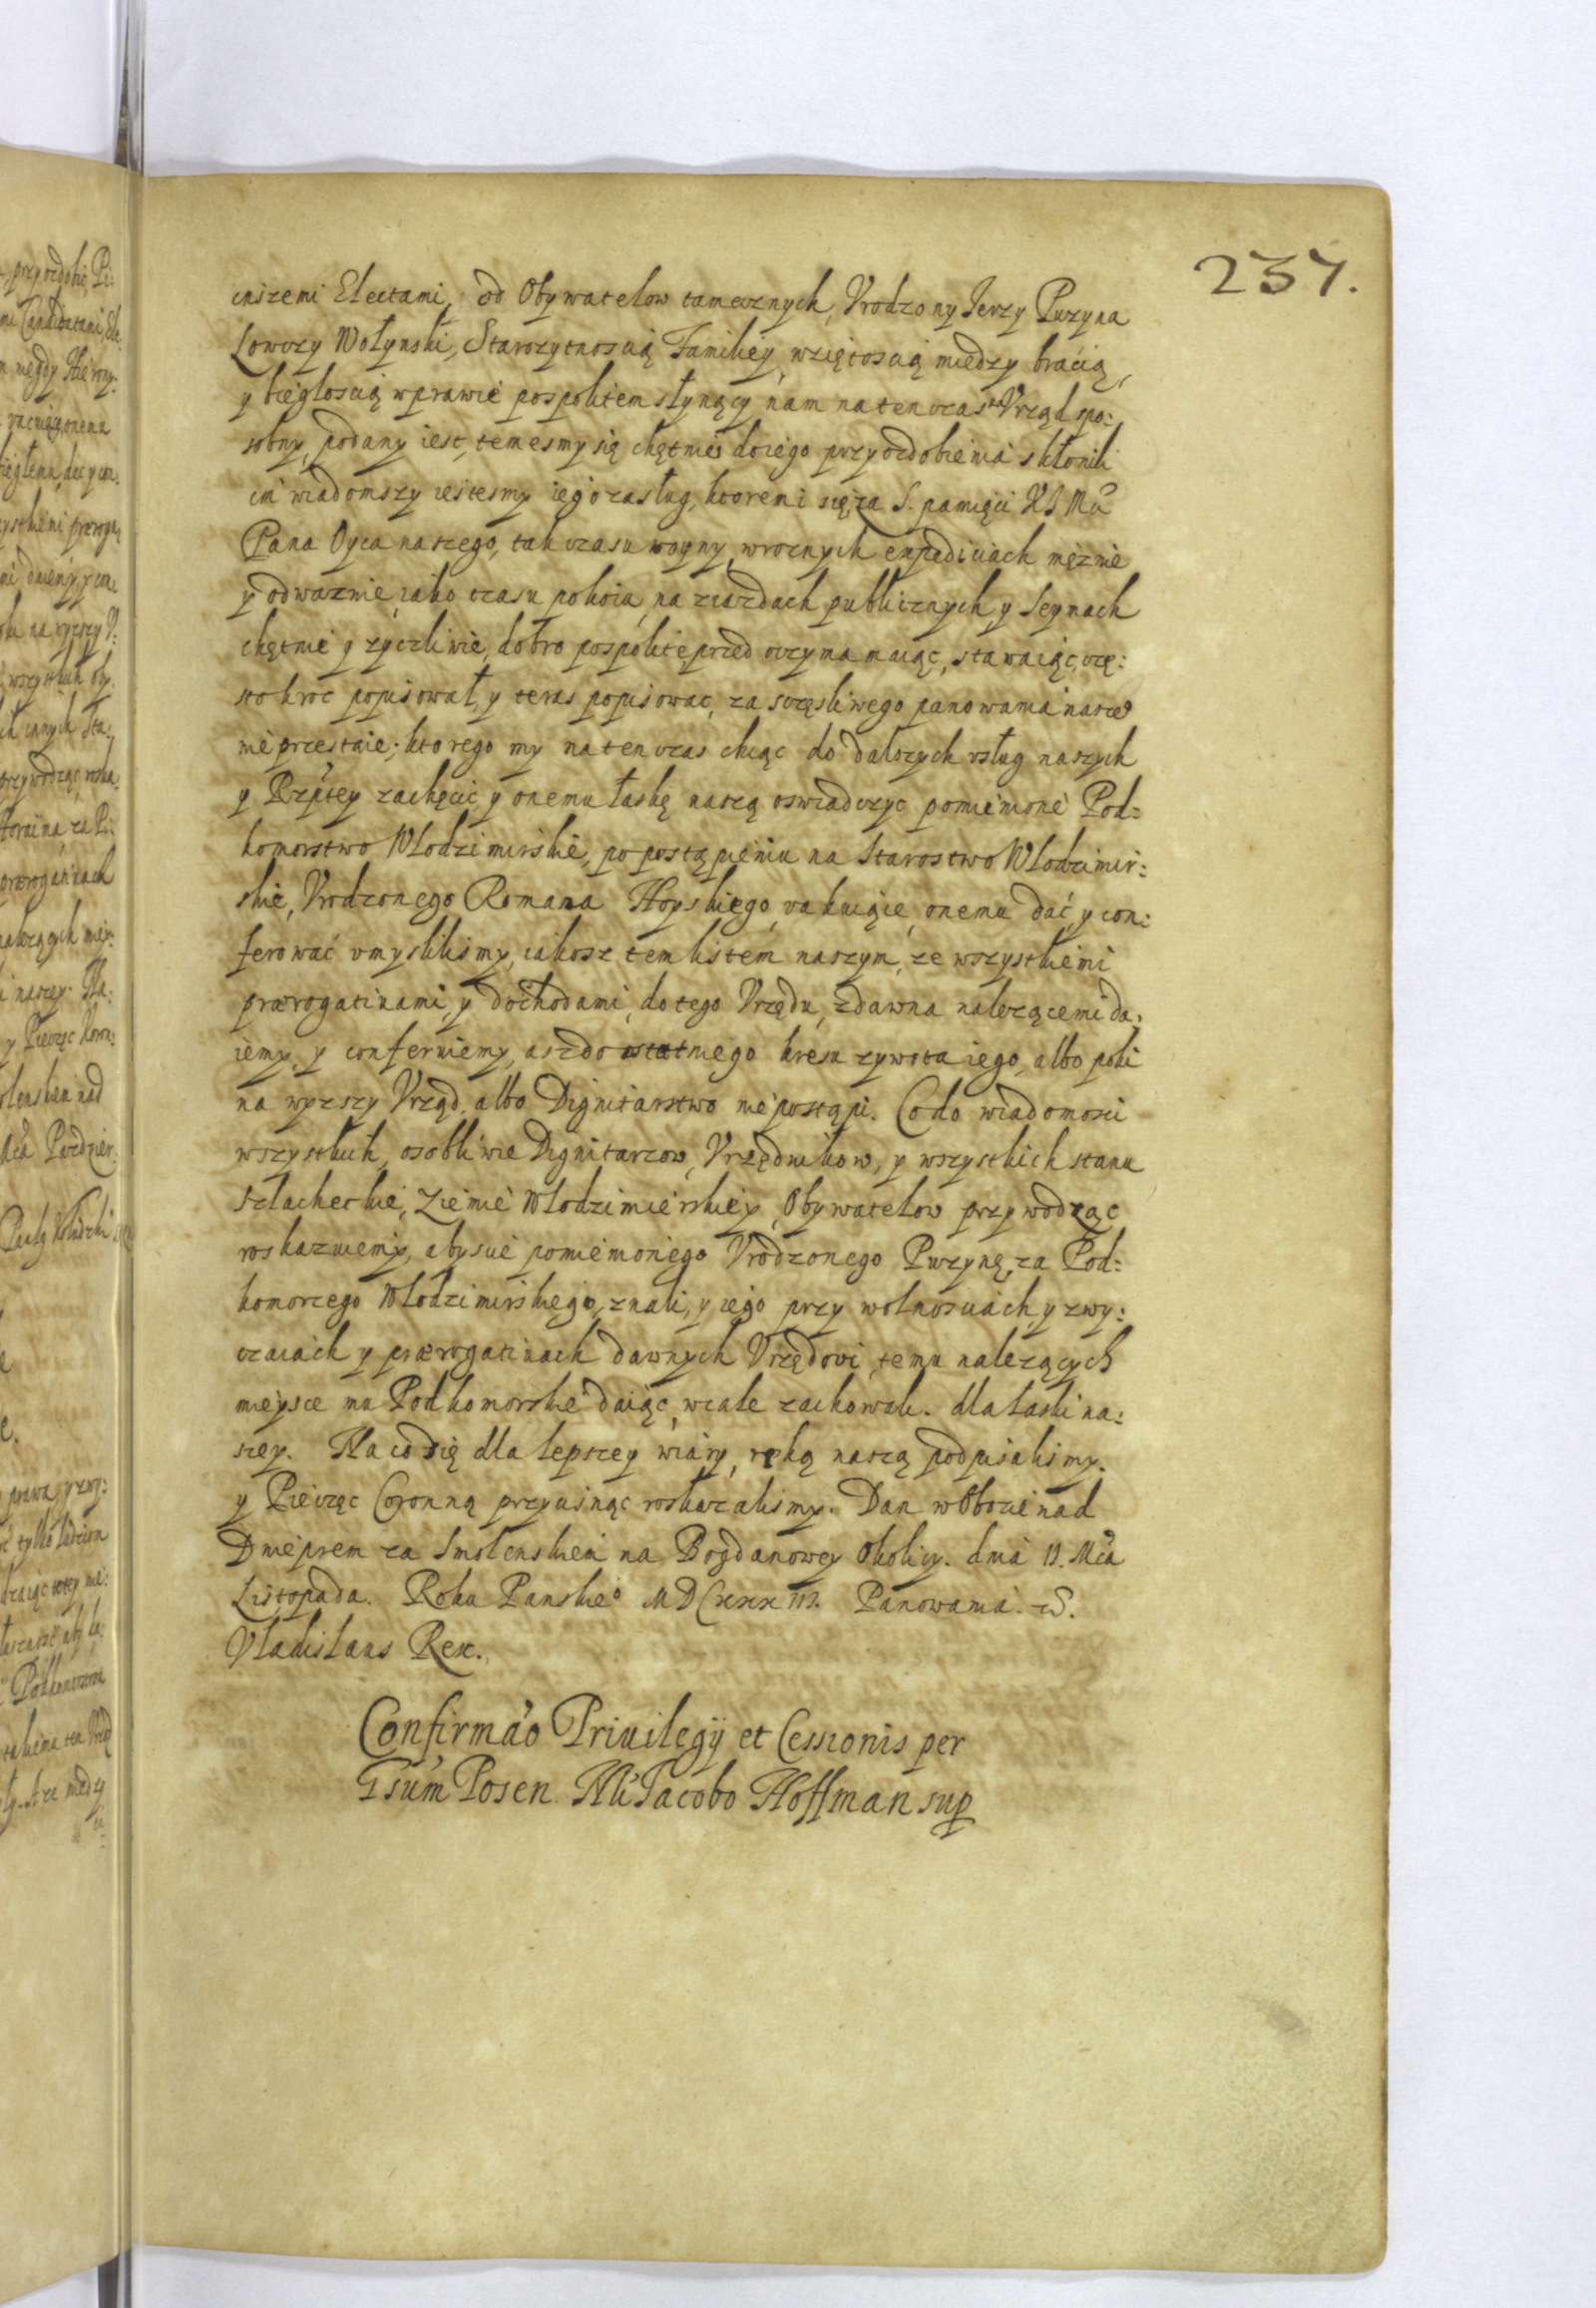 237.
inszemi Electami, od Obywatelow tamecznych, Vrodzony Ierzy Puzyna
Lowczy Wołynski, Starozytnoscią Familiey, wziętoscią miedzy bracią,
y biegłoscią w prawie pospolitem słynący nam na ten czas Vrząd spo:
sobny, podany iest, temesmy się chętniei do iego przyozdobienia skłonili
im wiadomszy iestesmy iego zasług, ktoremi się za S. pamięci K J Mci
Pana Oyca naszego, tak czasu woyny, w roznych expediciach mężnie
y odwaznie, iako czasu pokoiu, na ziazdach publicznych y Seymach
chętnie y zyczliwie, dobro pospolite przed oczyma maiąc, stawaiąc, czę:
stokroc popisował, y teras popisowac, za sczęsliwego panowania naszeo
nie przestaie; ktorego my na ten czas chcąc do dalszych vsług naszych
y Rzptey zachęcic y onemu łaskę naszą oswiadczyc pomienione Pod=
komorstwo Włodzimirskie, po postąpieniu na Starostwo Włodzimir:
skie, Vrodzonego Romana Hoyskiego, vakuiące, onemu dać y con:
ferować vmyslilismy, iakosz tem listem naszym, ze wszystkiemi
prærogatiuami, y dochodami, do tego Vrzędu, zdawna nalezącemi da:
iemy, y conferuiemy, asz do ostatniego kresu zywota iego, albo poki
na wyzszy Vrząd, albo Dignitarstwo nie postąpi. Co do wiadomosci
wszystkich, osobliwie Dignitarzow, Vrzędnikow, y wszystkich stanu
szlacheckie, Ziemie Włodzimierskiey, Obywatelow przywodząc
roskazuiemy, abyscie pomienionego Vrodzonego Puzynę, za Pod=
komorzego Włodzimirskiego, znali, y iego przy wolnosciach, y zwy:
czaiach y prærogatiuach dawnych Vrzędowi temu nalezących
mieysce mu Podkomorskie daiąc, wcale zachowali. dla łaski na:
szey. Na co się dla lepszey wiary, ręką naszą podpisalismy.
y Pieczęc Coronną przycisnąc roskazalismy. Dan w Obozie nad
Dnieprem za Smolenskiem na Bogdanowey Okolicy. dnia 11. Mca
Listopada. Roku Panskieo MDCxxxIII. Panowania. etc.
Vladislaus Rex.
Confirmão Priuilegÿ et Cessionis per
Gsúm Posen. Nli Jacobo Hoffman sup